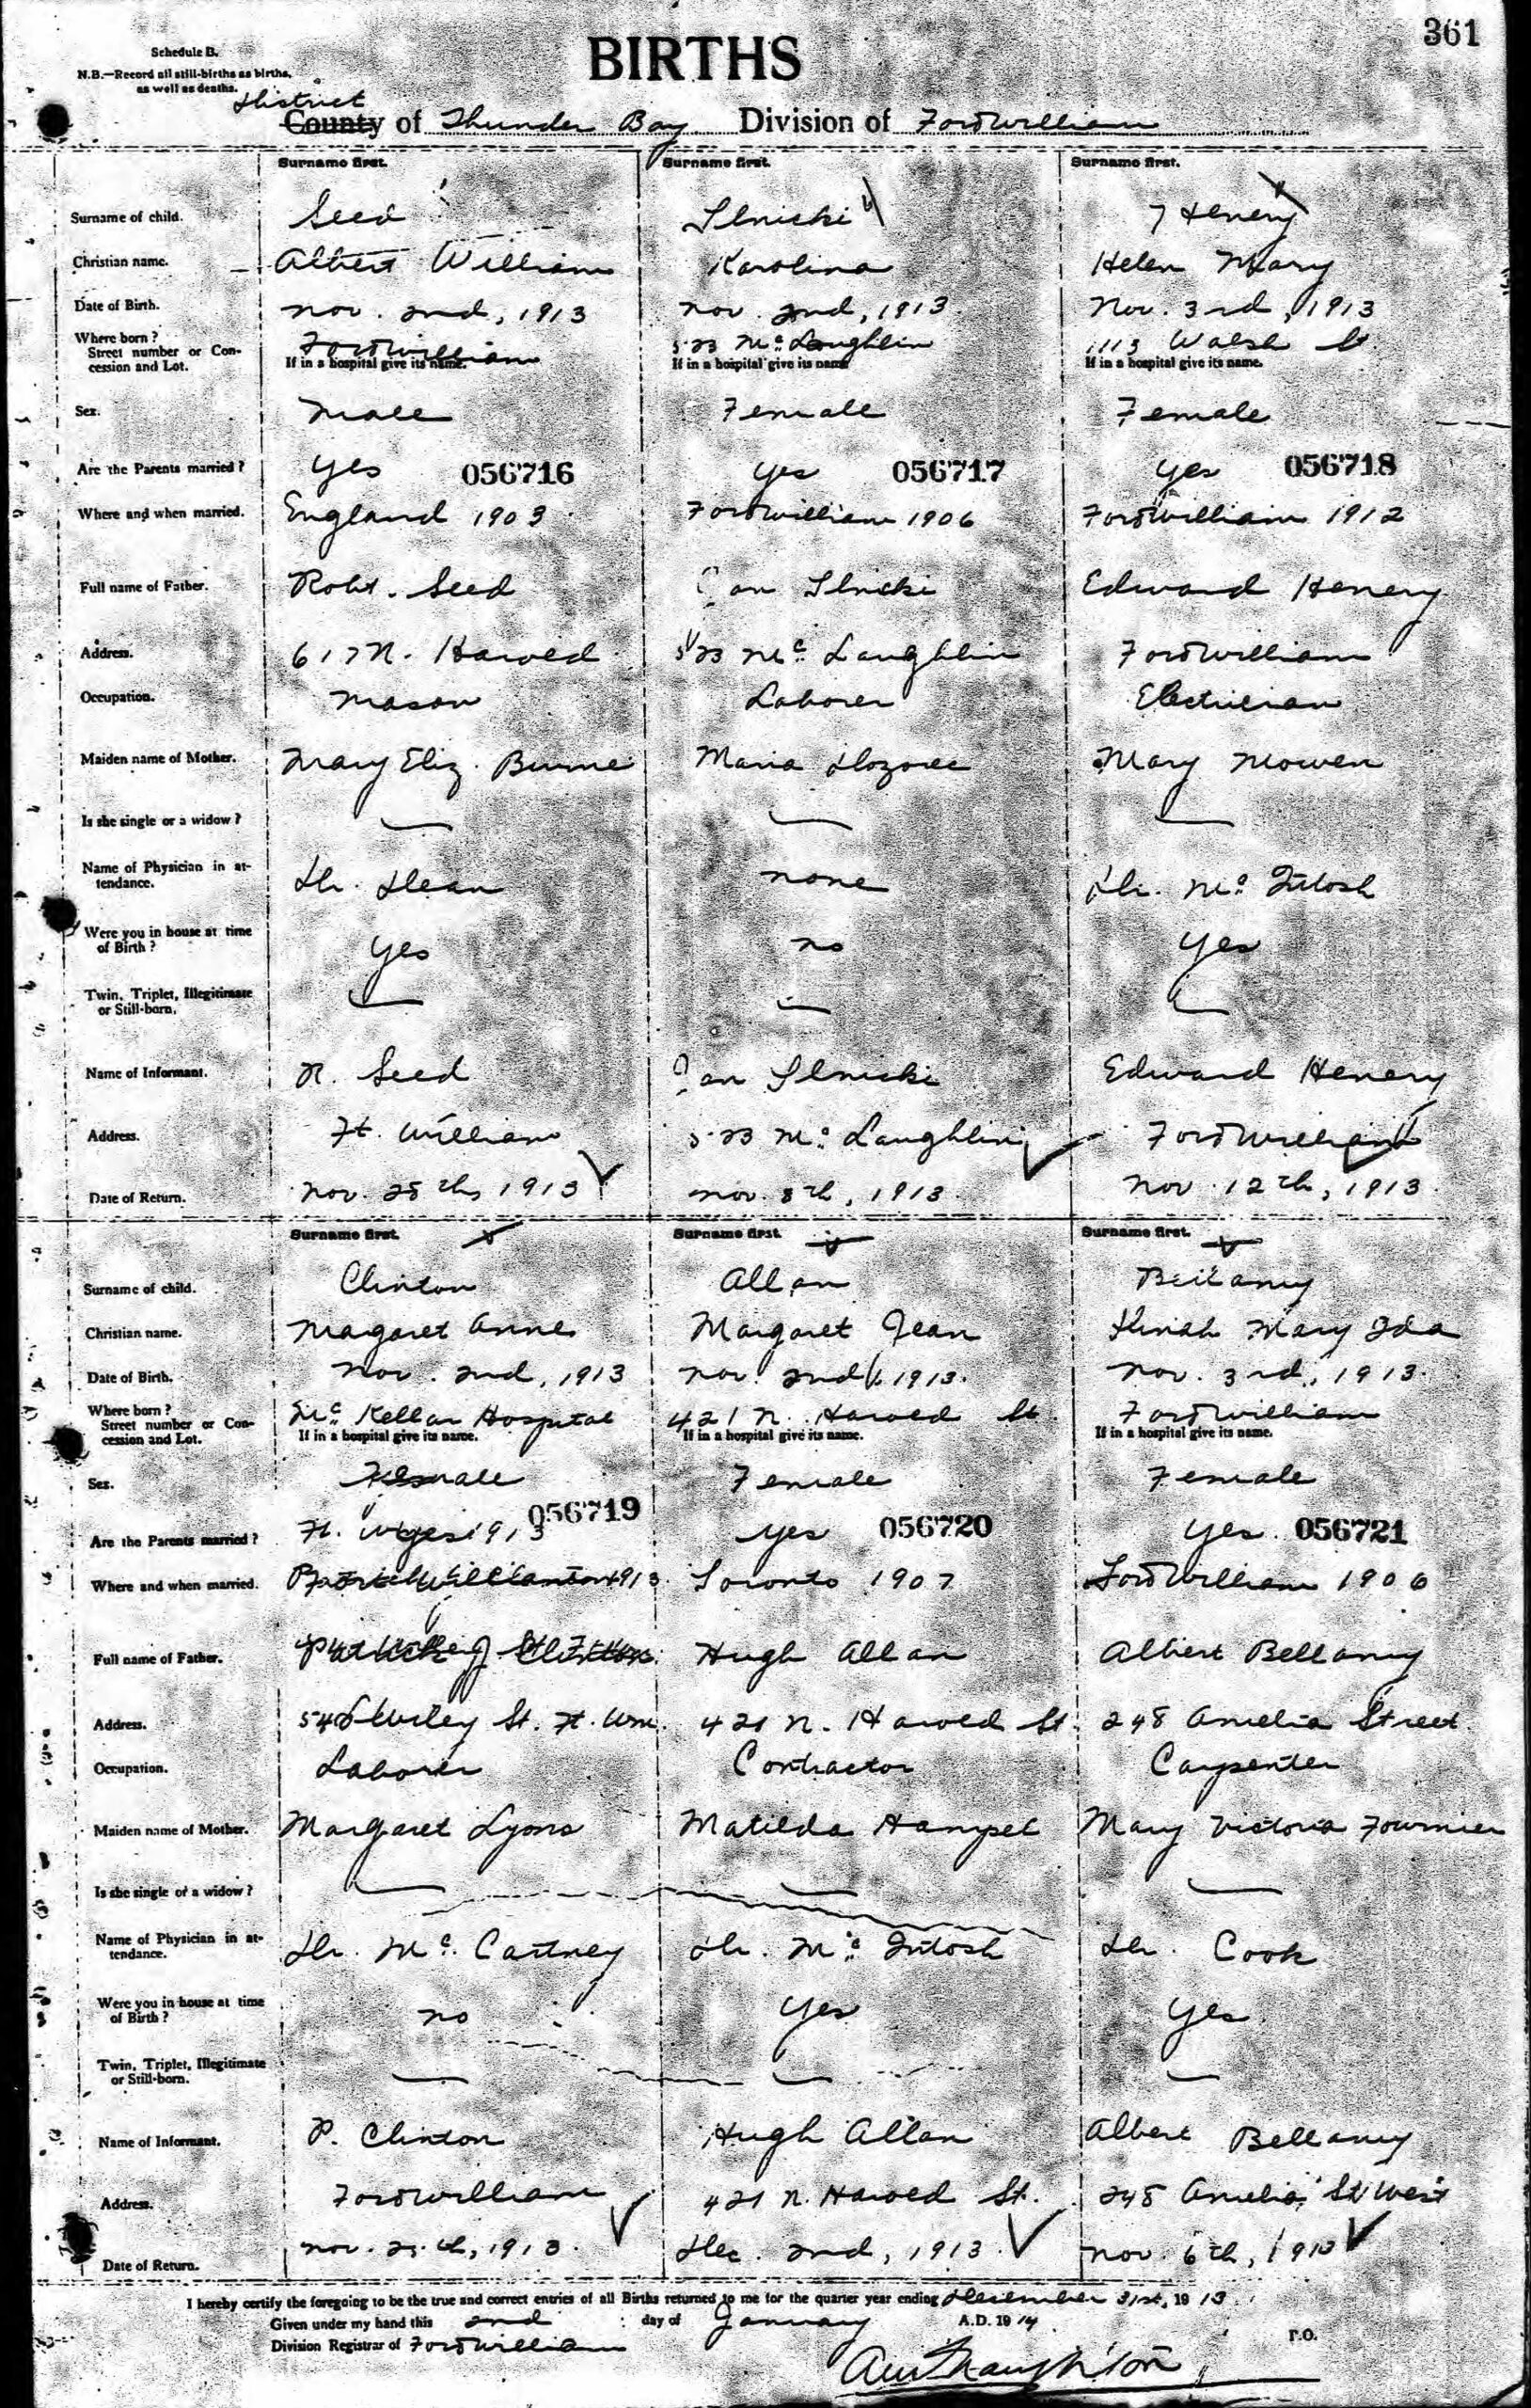 361
Schedule B.
BIRTHS
N.B.—Record all still-births as births,
as well as deaths.
District
County of Thunder Bay Division of Fort William
Surname first. Surname first. Surname first.
Surname of child. Seed Ilnicki Henery
Christian name. Albert William Karolina Helen Mary
Date of Birth. Nov. 2nd, 1913 Nov. 2nd, 1913 Nov. 3rd, 1913
Where born? Fort William 523 McLaughlin 1113 Walsh St.
Street number or Con-
cession and Lot. If in a hospital give its name. If in a hospital give its name. If in a hospital give its name.
Sex. Male Female Female
Are the Parents married? Yes 056716 Yes 056717 Yes 056718
Where and when married. England 1903 Fort William 1906 Fort William 1912
Full name of Father. Robt. Seed Jan Ilnicki Edward Henery
Address. 617 N. Harold 523 McLaughlin Fort William
Occupation. Mason Laborer Electrician
Maiden name of Mother. Mary Eliz. Maria Mary Mowen
Is she single or a widow? — — —
Name of Physician in at-
tendance. Dr. Dean none Dr. McIntosh
Were you in house at time
of Birth? Yes no Yes
Twin, Triplet, Illegitimate
or Still-born. — — —
Name of Informant. R. Seed Jan Ilnicki Edward Henery
Address. Ft. William 523 McLaughlin Fort William
Date of Return. Nov. 28th, 1913 Nov. 8th, 1913. Nov. 12th, 1913.
Surname first. Surname first. Surname first.
Surname of child. Clinton Allan Bellamy
Christian name. Margaret Anne Margaret Jean Mary Ida
Date of Birth. Nov. 2nd, 1913 Nov. 2nd, 1913. Nov. 3rd, 1913.
Where born? McKellar Hospital 421 N. Harold St. Fort William
Street number or Con-
cession and Lot. If in a hospital give its name. If in a hospital give its name. If in a hospital give its name.
Sex. Female Female Female
Are the Parents married? yes 056719 Yes 056720 Yes. 056721
Where and when married. 1913 Toronto 1907 Fort William 1906
Full name of Father. Clinton Hugh Allan Albert Bellamy
Address. Wiley St. Ft. Wm. 421 N. Harold St. 248 Amelia Street
Occupation. Laborer Contractor Carpenter
Maiden name of Mother. Margaret Lyons Matilda Hampel Mary Victoria Fournier
Is she single or a widow? — — —
Name of Physician in at-
tendance. Dr. McCartney Dr. McIntosh Dr. Cook
Were you in house at time
of Birth? no Yes Yes
Twin, Triplet, Illegitimate
or Still-born. — — —
Name of Informant. P. Clinton Hugh Allan Albert Bellamy
Address. Fort William 421 N. Harold St. 248 Amelia St West
Date of Return. Nov. 1913. Dec. 2nd, 1913. Nov. 6th, 1913
I hereby certify the foregoing to be the true and correct entries of all Births returned to me for the quarter year ending December 31st, 19 13.
Given under my hand this 2nd day of January A.D. 19 14
Division Registrar of Fort William P.O.